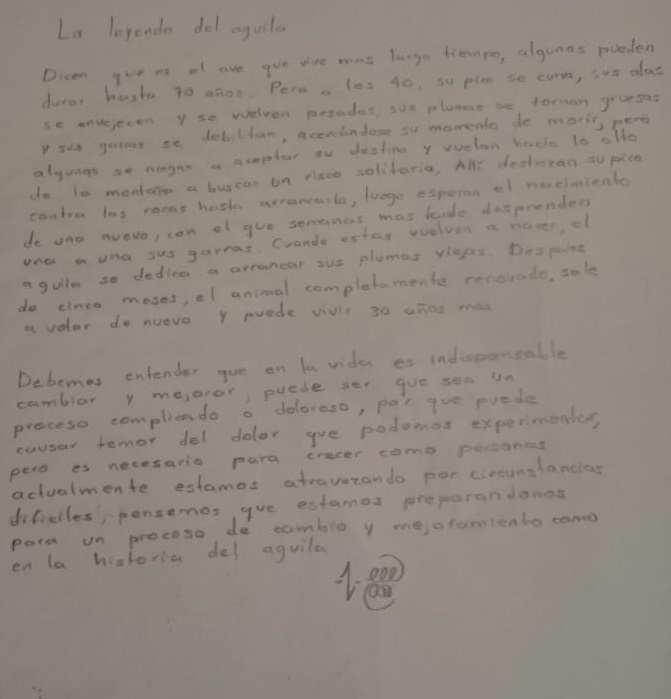 La leyenda del aguila
Dicen que es el ave que vive mas largo tiempo, algunas pueden
durar hasta 70 años. Pero a los 40, su pico se curva, sus alas
se envejecen y se vuelven pesadas, sus plumas se tornan gruesas
y sus garras se debilitan, acercándose su momento de morir, pero
algunas se niegan a aceptar su destino y vuelan hacia lo alto
de la montaña a buscar un risco solitario, Allí destrozan su pico
contra las rocas hasta arrancarlo, luego esperan el nacimiento
de uno nuevo, con el que semanas mas tarde desprenden
una a una sus garras. Cuando estas vuelven a nacer, el
aguila se dedica a arrancar sus plumas viejas. Despues
de cinco meses, el animal completamente renovado, sale
a volar de nuevo y puede vivir 30 años mas
Debemos entender que en la vida es indispensable
cambiar y mejorar, puede ser que sea un
proceso complicado o doloroso, por que puede
causar temor del dolor que podamos experimentar,
pero es necesario para crecer como personas
actualmente estamos atravezando por circunstancias
dificiles, pensemos que estamos preparandonos
para un proceso de cambio y mejoramiento como
en la historia del aguila